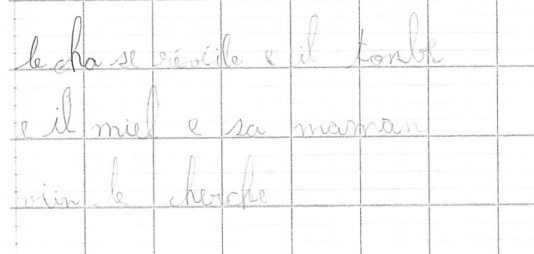 le cha se réveille e il tonbe
e il miel e sa maman
viin le cherche